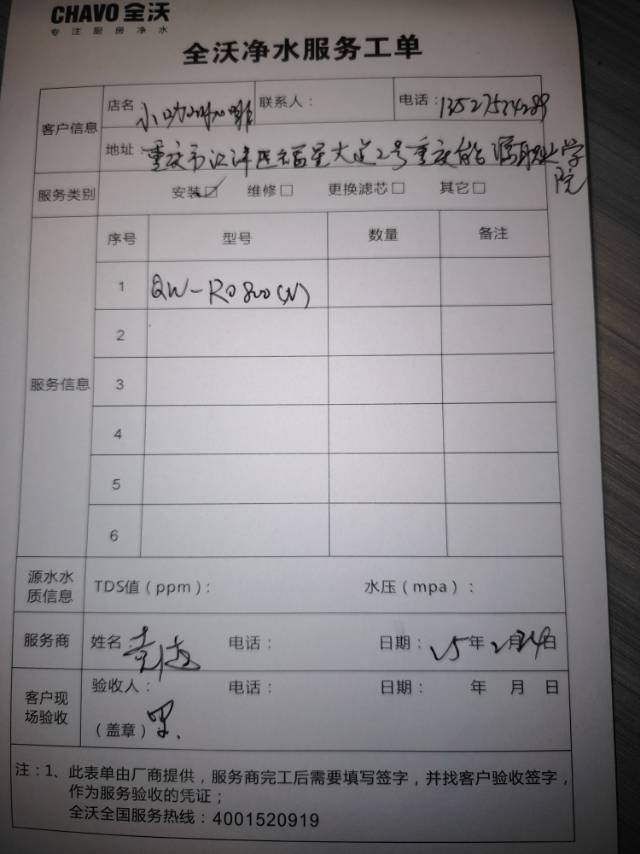 CHAVO 全沃
专注厨房净水
全沃净水服务工单
客户信息
店名 小咖咖啡 联系人： 电话：
地址: 重庆市江津区福星大道2号重庆能源职业学院
服务类别 安装☑ 维修□ 更换滤芯□ 其它□
服务信息
序号 型号 数量 备注
1 QW-RO800(N)
2
3
4
5
6
源水水质信息 TDS值（ppm）： 水压（mpa）：
服务商 姓名 电话： 日期： 25年2月24日
客户现场验收
验收人： 电话： 日期： 年 月 日
（盖章）
注：1、此表单由厂商提供，服务商完工后需要填写签字，并找客户验收签字，
作为服务验收的凭证；
全沃全国服务热线：4001520919